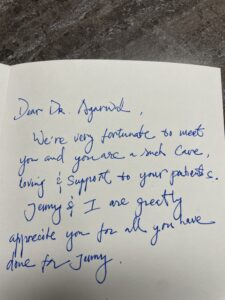 Dear Dr. Agarwal,
We're very fortunate to meet
you and you are a such care,
loving & support to your patients.
Jenny & I are greatly
apprecite you for all you have
done for Jenny.